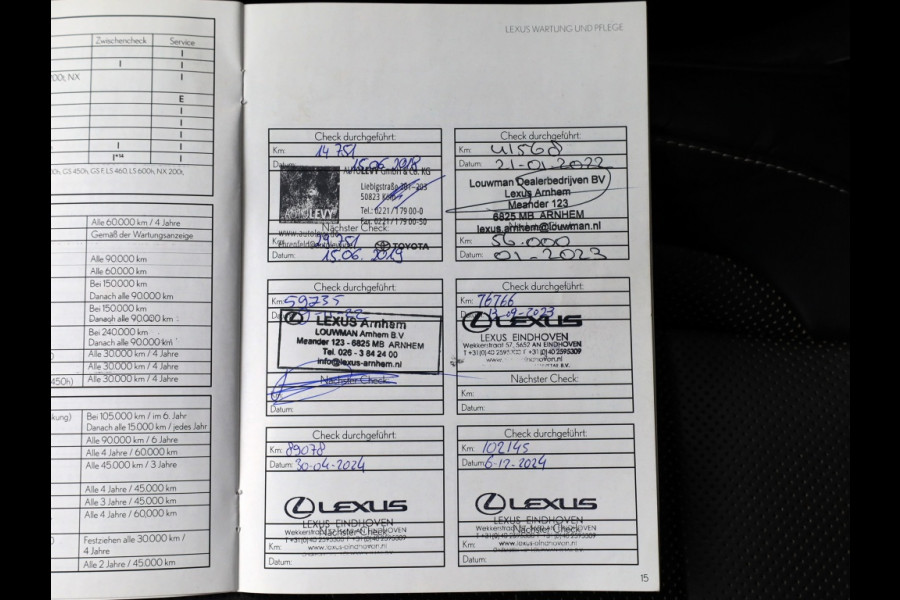 Zwischencheck Service
I
I I
00t, NX I
E
I
I
I
I I
I*14 I
0h, GS 450h, GS F, LS 460, LS 600h, NX 200t,
Alle 60.000 km / 4 Jahre
Gemäß der Wartungsanzeige
Alle 90.000 km
Alle 60.000 km
Bei 150.000 km
Danach alle 90.000 km
Bei 150.000 km
Danach alle 90.000 km
Bei 240.000 km
Danach alle 90.000 km
Alle 30.000 km / 4 Jahre
Alle 30.000 km / 4 Jahre
450h) Alle 30.000 km / 4 Jahre
kung) Bei 105.000 km / im 6. Jahr
Danach alle 15.000 km / jedes Jahr
Alle 90.000 km / 6 Jahre
Alle 4 Jahre / 60.000 km
Alle 45.000 km / 3 Jahre
Alle 4 Jahre / 45.000 km
Alle 3 Jahre / 45.000 km
Alle 4 Jahre / 60.000 km
Festziehen alle 30.000 km /
4 Jahre
Alle 2 Jahre / 45.000 km
LEXUS WARTUNG UND PFLEGE
Check durchgeführt:
Km: 14 751
Datum: 15.06.2018
AUTOLEVY GmbH & Co. KG
Liebigstraße 201-203
50823 Köln
Tel.: 0221/1 79 00-0
Fax: 0221/1 79 00-50
AUTOLEVY
Nächster Check:
TOYOTA
Km: 29 751
Datum: 15.06.2019
Check durchgeführt:
Km: 41568
Datum: 21-01-2022
Louwman Dealerbedrijven BV
Lexus Arnhem
Meander 123
6825 MB ARNHEM
Nächster Check:
lexus.arnhem@louwman.nl
Km: 56.000
Datum: 01-2023
Check durchgeführt:
Km: 59735
LEXUS Arnhem
LOUWMAN Arnhem B.V
Meander 123 - 6825 MB ARNHEM
Tel. 026 - 3 84 24 00
info@lexus-arnhem.nl
Nächster Check:
Datum:
Check durchgeführt:
Km: 76766
Datum: 13-09-2023
LEXUS
LEXUS EINDHOVEN
Wekkerstraat 57, 5652 AN EINDHOVEN
T +31(0)40 2595309
Nächster Check:
Km:
Datum:
Check durchgeführt:
Km: 89078
Datum: 30-04-2024
LEXUS
LEXUS EINDHOVEN
Nächster Check:
www.lexus-eindhoven.nl
Km:
Datum:
Check durchgeführt:
Km: 102145
Datum: 6-12-2024
LEXUS
LEXUS EINDHOVEN
Nächster Check:
www.lexus-eindhoven.nl
Km:
Datum:
15